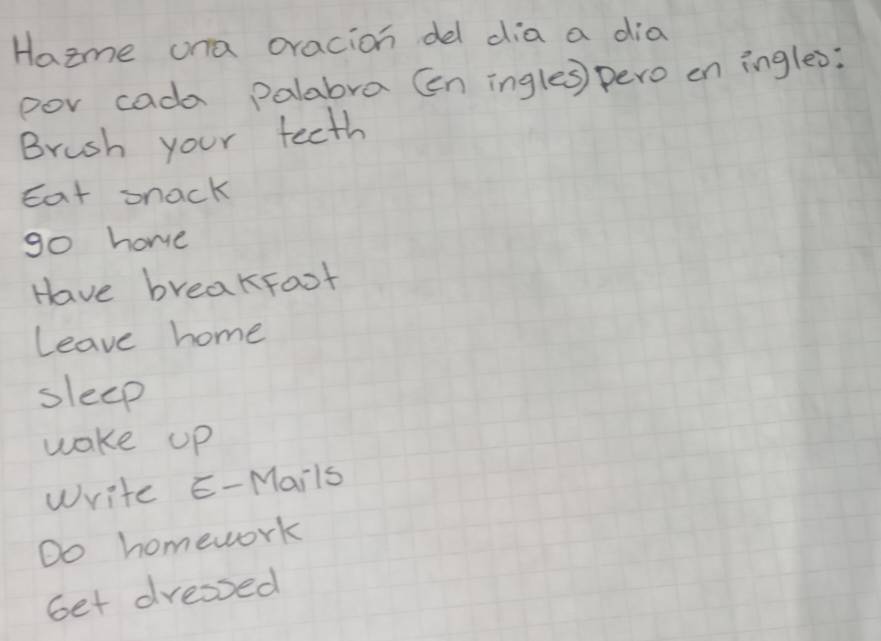 Hazme una oración del dia a dia
por cada palabra (en ingles) pero en ingles:
Brush your teeth
Eat snack
go home
Have breakfast
Leave home
sleep
wake up
Write E-Mails
Do homework
Get dressed